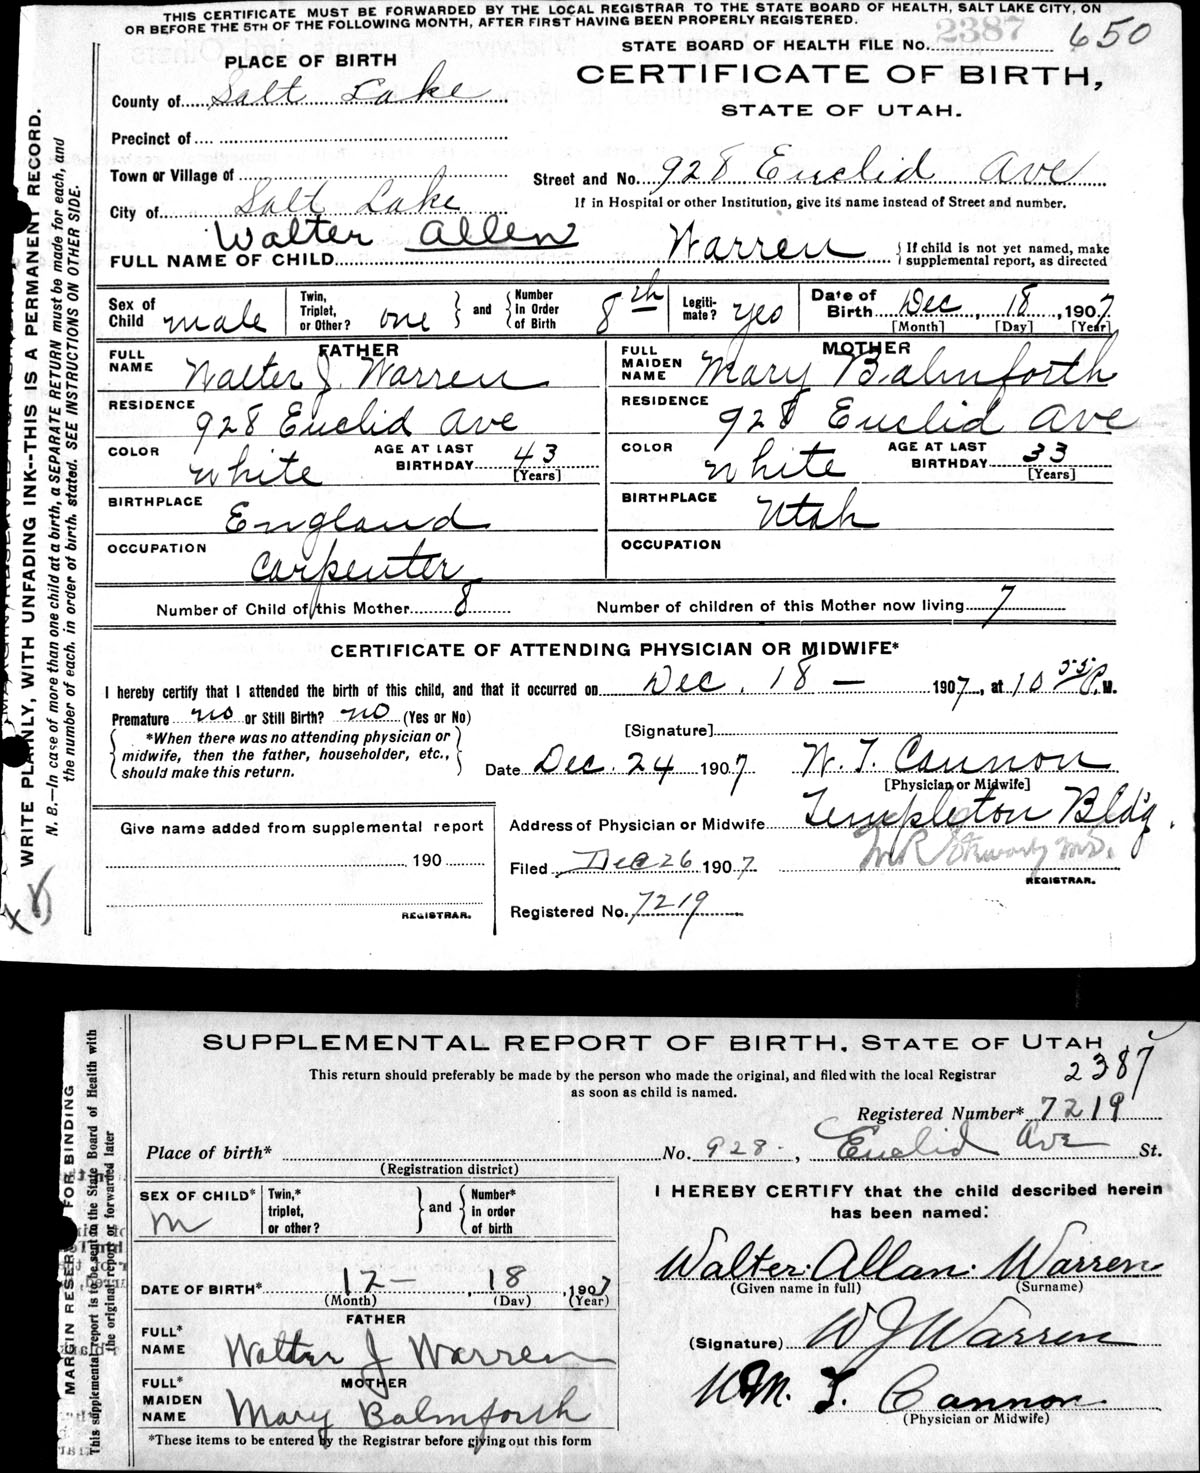 THIS CERTIFICATE MUST BE FORWARDED BY THE LOCAL REGISTRAR TO THE STATE BOARD OF HEALTH, SALT LAKE CITY, ON
OR BEFORE THE 5TH OF THE FOLLOWING MONTH, AFTER FIRST HAVING BEEN PROPERLY REGISTERED.
STATE BOARD OF HEALTH FILE No. 2387 650
PLACE OF BIRTH
CERTIFICATE OF BIRTH,
STATE OF UTAH.
County of Salt Lake
Precinct of
Town or Village of
Street and No. 928 Euclid Ave
City of Salt Lake
If in Hospital or other Institution, give its name instead of Street and number.
FULL NAME OF CHILD Walter Allen Warren
If child is not yet named, make
supplemental report, as directed
Sex of Child male
Twin, Triplet, or Other? one and Number in Order of Birth 8th
Legiti-mate? yes
Date of Birth Dec 18, 1907
[Month] [Day] [Year]
FATHER
FULL NAME Walter J. Warren
RESIDENCE 928 Euclid Ave
COLOR White
AGE AT LAST BIRTHDAY 43
[Years]
BIRTHPLACE England
OCCUPATION Carpenter
MOTHER
FULL MAIDEN NAME Mary Balmforth
RESIDENCE 928 Euclid Ave
COLOR White
AGE AT LAST BIRTHDAY 33
[Years]
BIRTHPLACE Utah
OCCUPATION
Number of Child of this Mother 8
Number of children of this Mother now living 7
CERTIFICATE OF ATTENDING PHYSICIAN OR MIDWIFE*
I hereby certify that I attended the birth of this child, and that it occurred on Dec. 18 - 1907, at 10 55 P.M.
Premature no or Still Birth? no (Yes or No)
*When there was no attending physician or
midwife, then the father, householder, etc.,
should make this return.
[Signature]
Date Dec. 24 1907
W. T. Cannon
[Physician or Midwife]
Give name added from supplemental report
190
REGISTRAR.
Address of Physician or Midwife Templeton Bldg.
Filed Dec 26 1907
REGISTRAR.
Registered No. 7219
WRITE PLAINLY, WITH UNFADING INK--THIS IS A PERMANENT RECORD.
N. B.—In case of more than one child at a birth, a SEPARATE RETURN must be made for each, and
the number of each, in order of birth, stated. SEE INSTRUCTIONS ON OTHER SIDE.
SUPPLEMENTAL REPORT OF BIRTH, STATE OF UTAH
2387
This return should preferably be made by the person who made the original, and filed with the local Registrar
as soon as child is named.
Registered Number* 7219
Place of birth* No. 928 - , Euclid Ave St.
(Registration district)
SEX OF CHILD* M
Twin,* triplet, or other? and Number* in order of birth
I HEREBY CERTIFY that the child described herein
has been named:
Walter Allan Warren
(Given name in full) (Surname)
DATE OF BIRTH* 12 - 18, 1907
(Month) (Day) (Year)
FATHER
FULL* NAME Walter J Warren
(Signature) W J Warren
MOTHER
FULL* MAIDEN NAME Mary Balmforth
Wm. T. Cannon
(Physician or Midwife)
*These items to be entered by the Registrar before giving out this form
MARGIN RESERVED FOR BINDING
This supplemental report is to be sent to the State Board of Health with
the original report or forwarded later